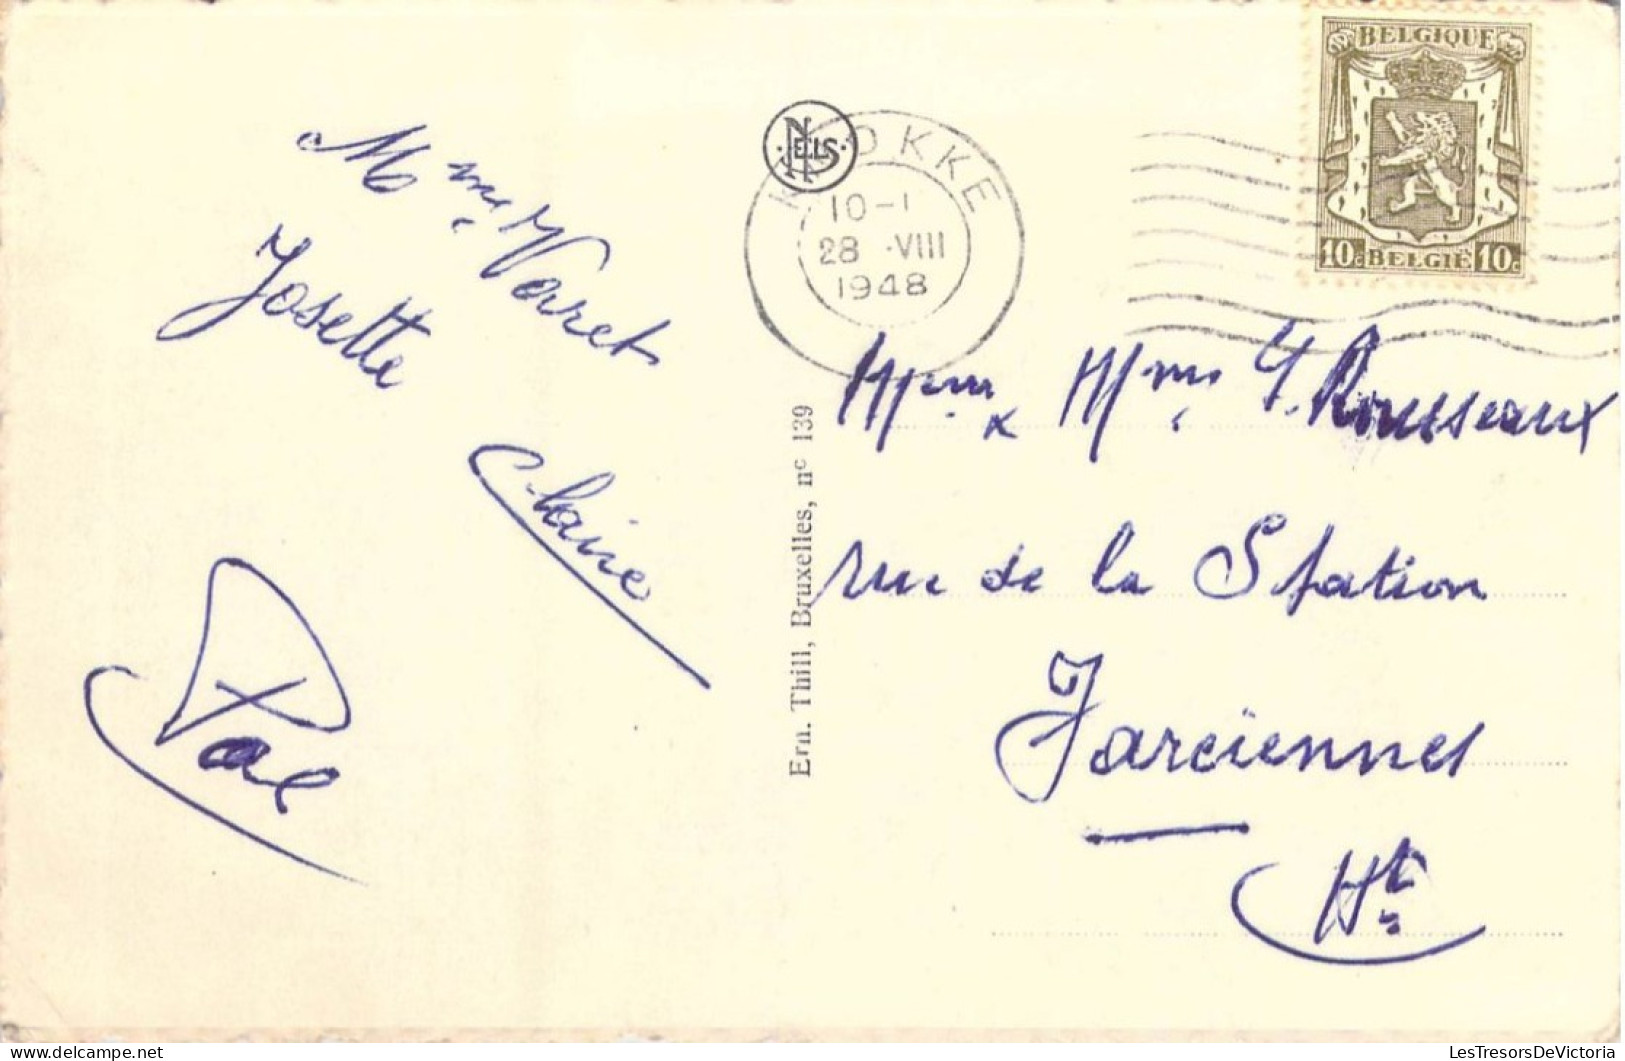 Mme Varet
Josette
Claire
NELS
Ern. Thill, Bruxelles, nº 139
KNOKKE
10-1
28 ·VIII
1948
BELGIQUE
10c BELGIË 10c
Mme Rousseaux
rue de la Station
Farciennes
Ht
LesTresorsDeVictoria
delcampe.net